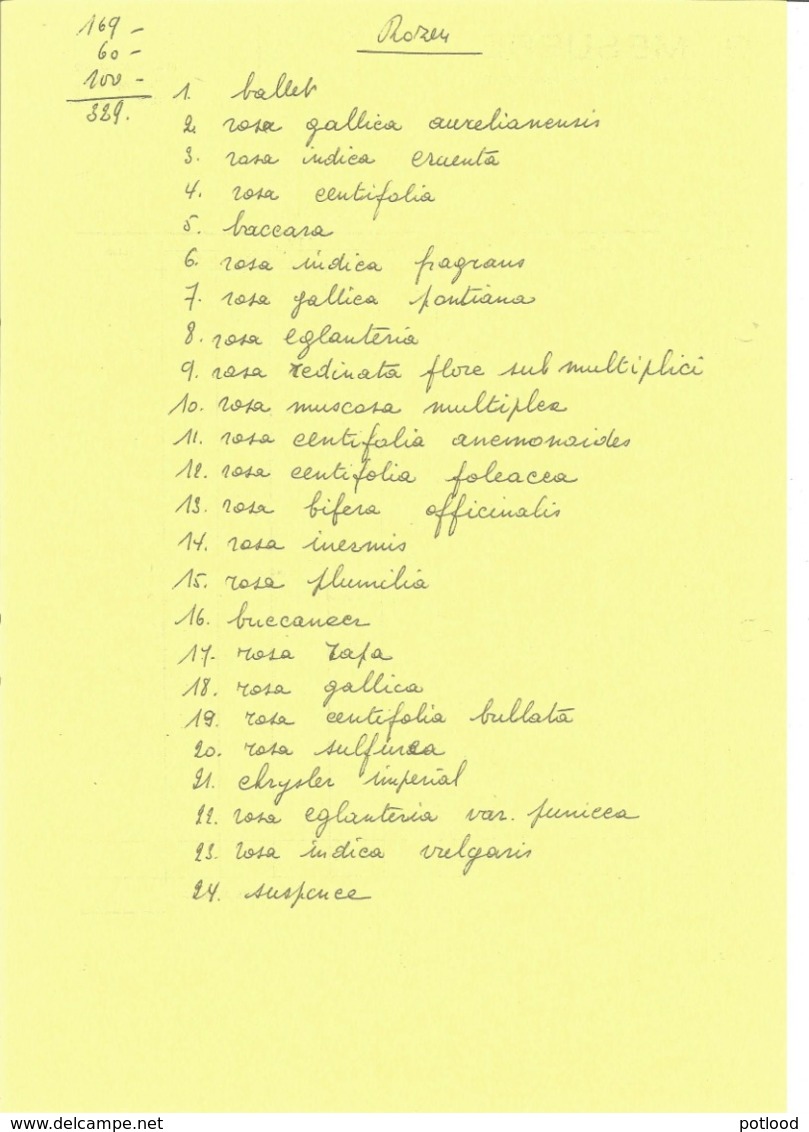 169 -
60 -
100 -
329.
Rozen
1. ballet
2. rosa gallica aurelianensis
3. rosa indica cruenta
4. rosa centifolia
5. baccara
6. rosa indica fragrans
7. rosa gallica pontiana
8. rosa eglanteria
9. rosa redinata flore sub multiplici
10. rosa muscosa multiplex
11. rosa centifolia anemonoides
12. rosa centifolia foleacea
13. rosa bifera officinalis
14. rosa inermis
15. rosa plumilia
16. buccaneer
17. rosa rapa
18. rosa gallica
19. rosa centifolia bullata
20. rosa sulfurea
21. chrysler imperial
22. rosa eglanteria var. punicea
23. rosa indica vulgaris
24. suspence
www.delcampe.net
potlood